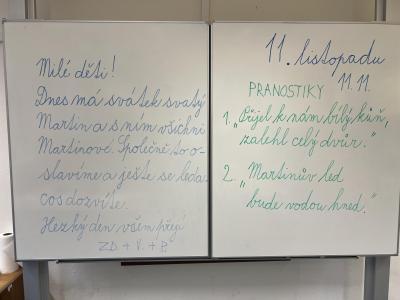 Milé děti!
Dnes má svátek svatý
Martin a s ním všichni
Martinové. Společně to o-
slavíme a ještě se leda-
cos dozvíte.
Hezký den všem přejí
ZD + V. + P.
11. listopadu
11.11.
PRANOSTIKY
1. „Přijel k nám bílý kůň,
zalehl celý dvůr."
2. „Martinův led
bude vodou hned."